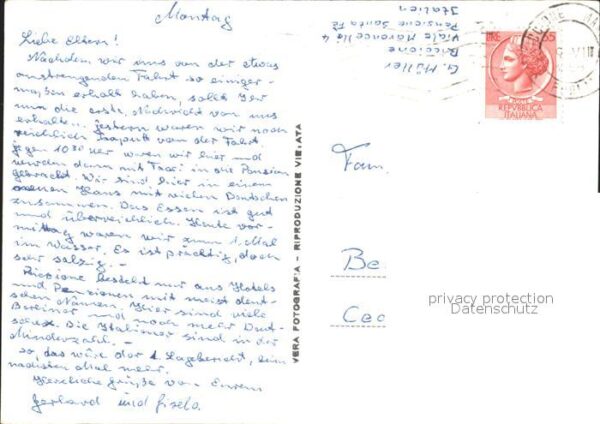 Montag
Liebe Eltern!
Nachdem wir uns von der etwas
anstrengenden Fahrt so einiger-
maßen erholt haben, sollt Ihr
nun die erste Nachricht von uns
erhalten. Gestern waren wir noch
reichlich kaputt von der Fahrt.
gegen 10 30 Uhr waren wir hier und
wurden dann mit Taxi in die Pension
gebracht. Wir sind hier in einem
Haus mit vielen Deutschen
zusammen. Das Essen ist gut
und überreichlich. Heute vor-
mittag waren wir zum 1. Mal
im Wasser. Es ist prächtig, doch
sehr salzig. -
Riccione besteht nur aus Hotels
und Pensionen mit meist deut-
schen Namen. Hier sind viele
Berliner und noch mehr Deut-
sche. Die Italiener sind in der
Minderzahl. -
So, das wäre der 1. Lagebericht, beim
nächsten Mal mehr.
Herzliche Grüße von Euren
Gerhard und Gisela.
VERA FOTOGRAFIA - RIPRODUZIONE VIETATA
G. Müller
Riccione
Viale Marance No 4
Pensione Santa Fé
Italien
LIRE 55
REPUBBLICA
ITALIANA
Fam.
Be
Cec
privacy protection
Datenschutz